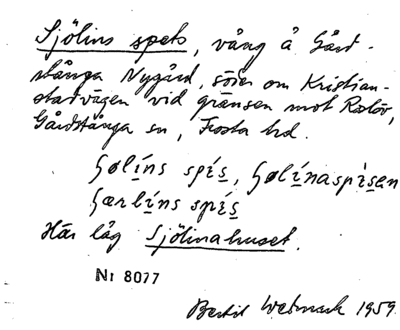 Sjölins spets, vång å Gård-
stånga Nygård, söder om Kristian-
stadvägen vid gränsen mot Roslöv,
Gårdstånga sn, Frosta hd.
ʂølíns spís, ʂølínaspìsen
ʂærlíns spís
Här låg Sjölinahuset.
Nr 8077
Bertil Wetmark 1959.